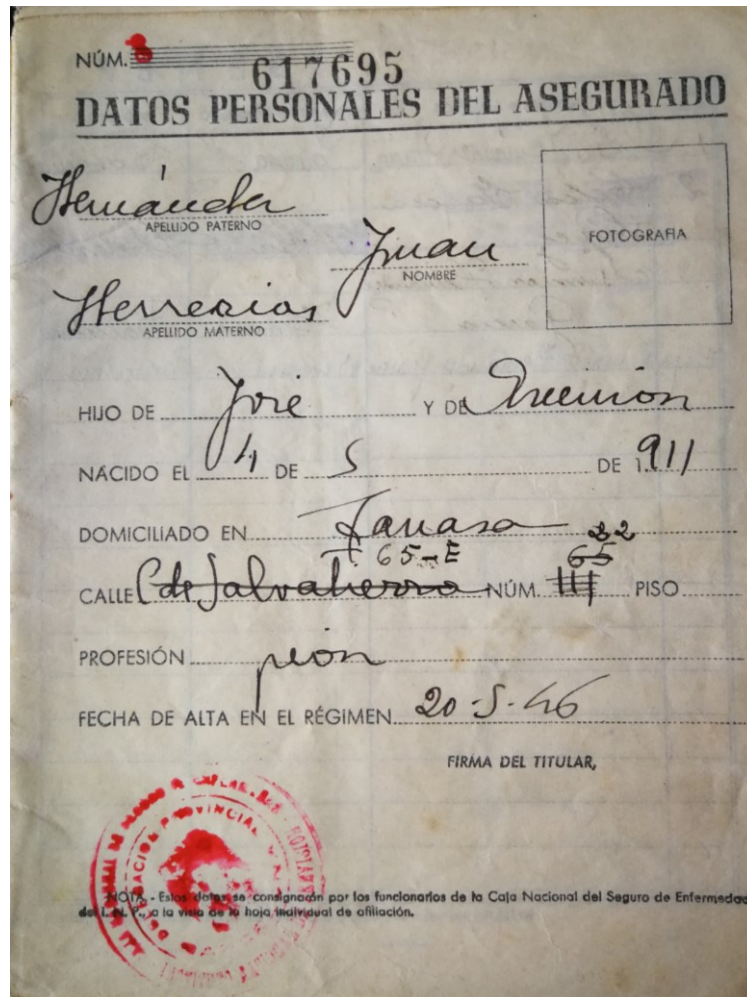 NÚM. 617695
DATOS PERSONALES DEL ASEGURADO
Hernández
APELLIDO PATERNO
Juan
NOMBRE
FOTOGRAFIA
Herrerías
APELLIDO MATERNO
HIJO DE José Y DE
NACIDO EL 4 DE 5 DE 1.911
DOMICILIADO EN 22
65-E 65
CALLE C de NÚM. PISO
PROFESIÓN peón
FECHA DE ALTA EN EL RÉGIMEN 20-5-46
FIRMA DEL TITULAR,
NOTA.- Estos datos se consignarán por los funcionarios de la Caja Nacional del Seguro de Enfermedad
del I. N. P., a la vista de la hoja individual de afiliación.